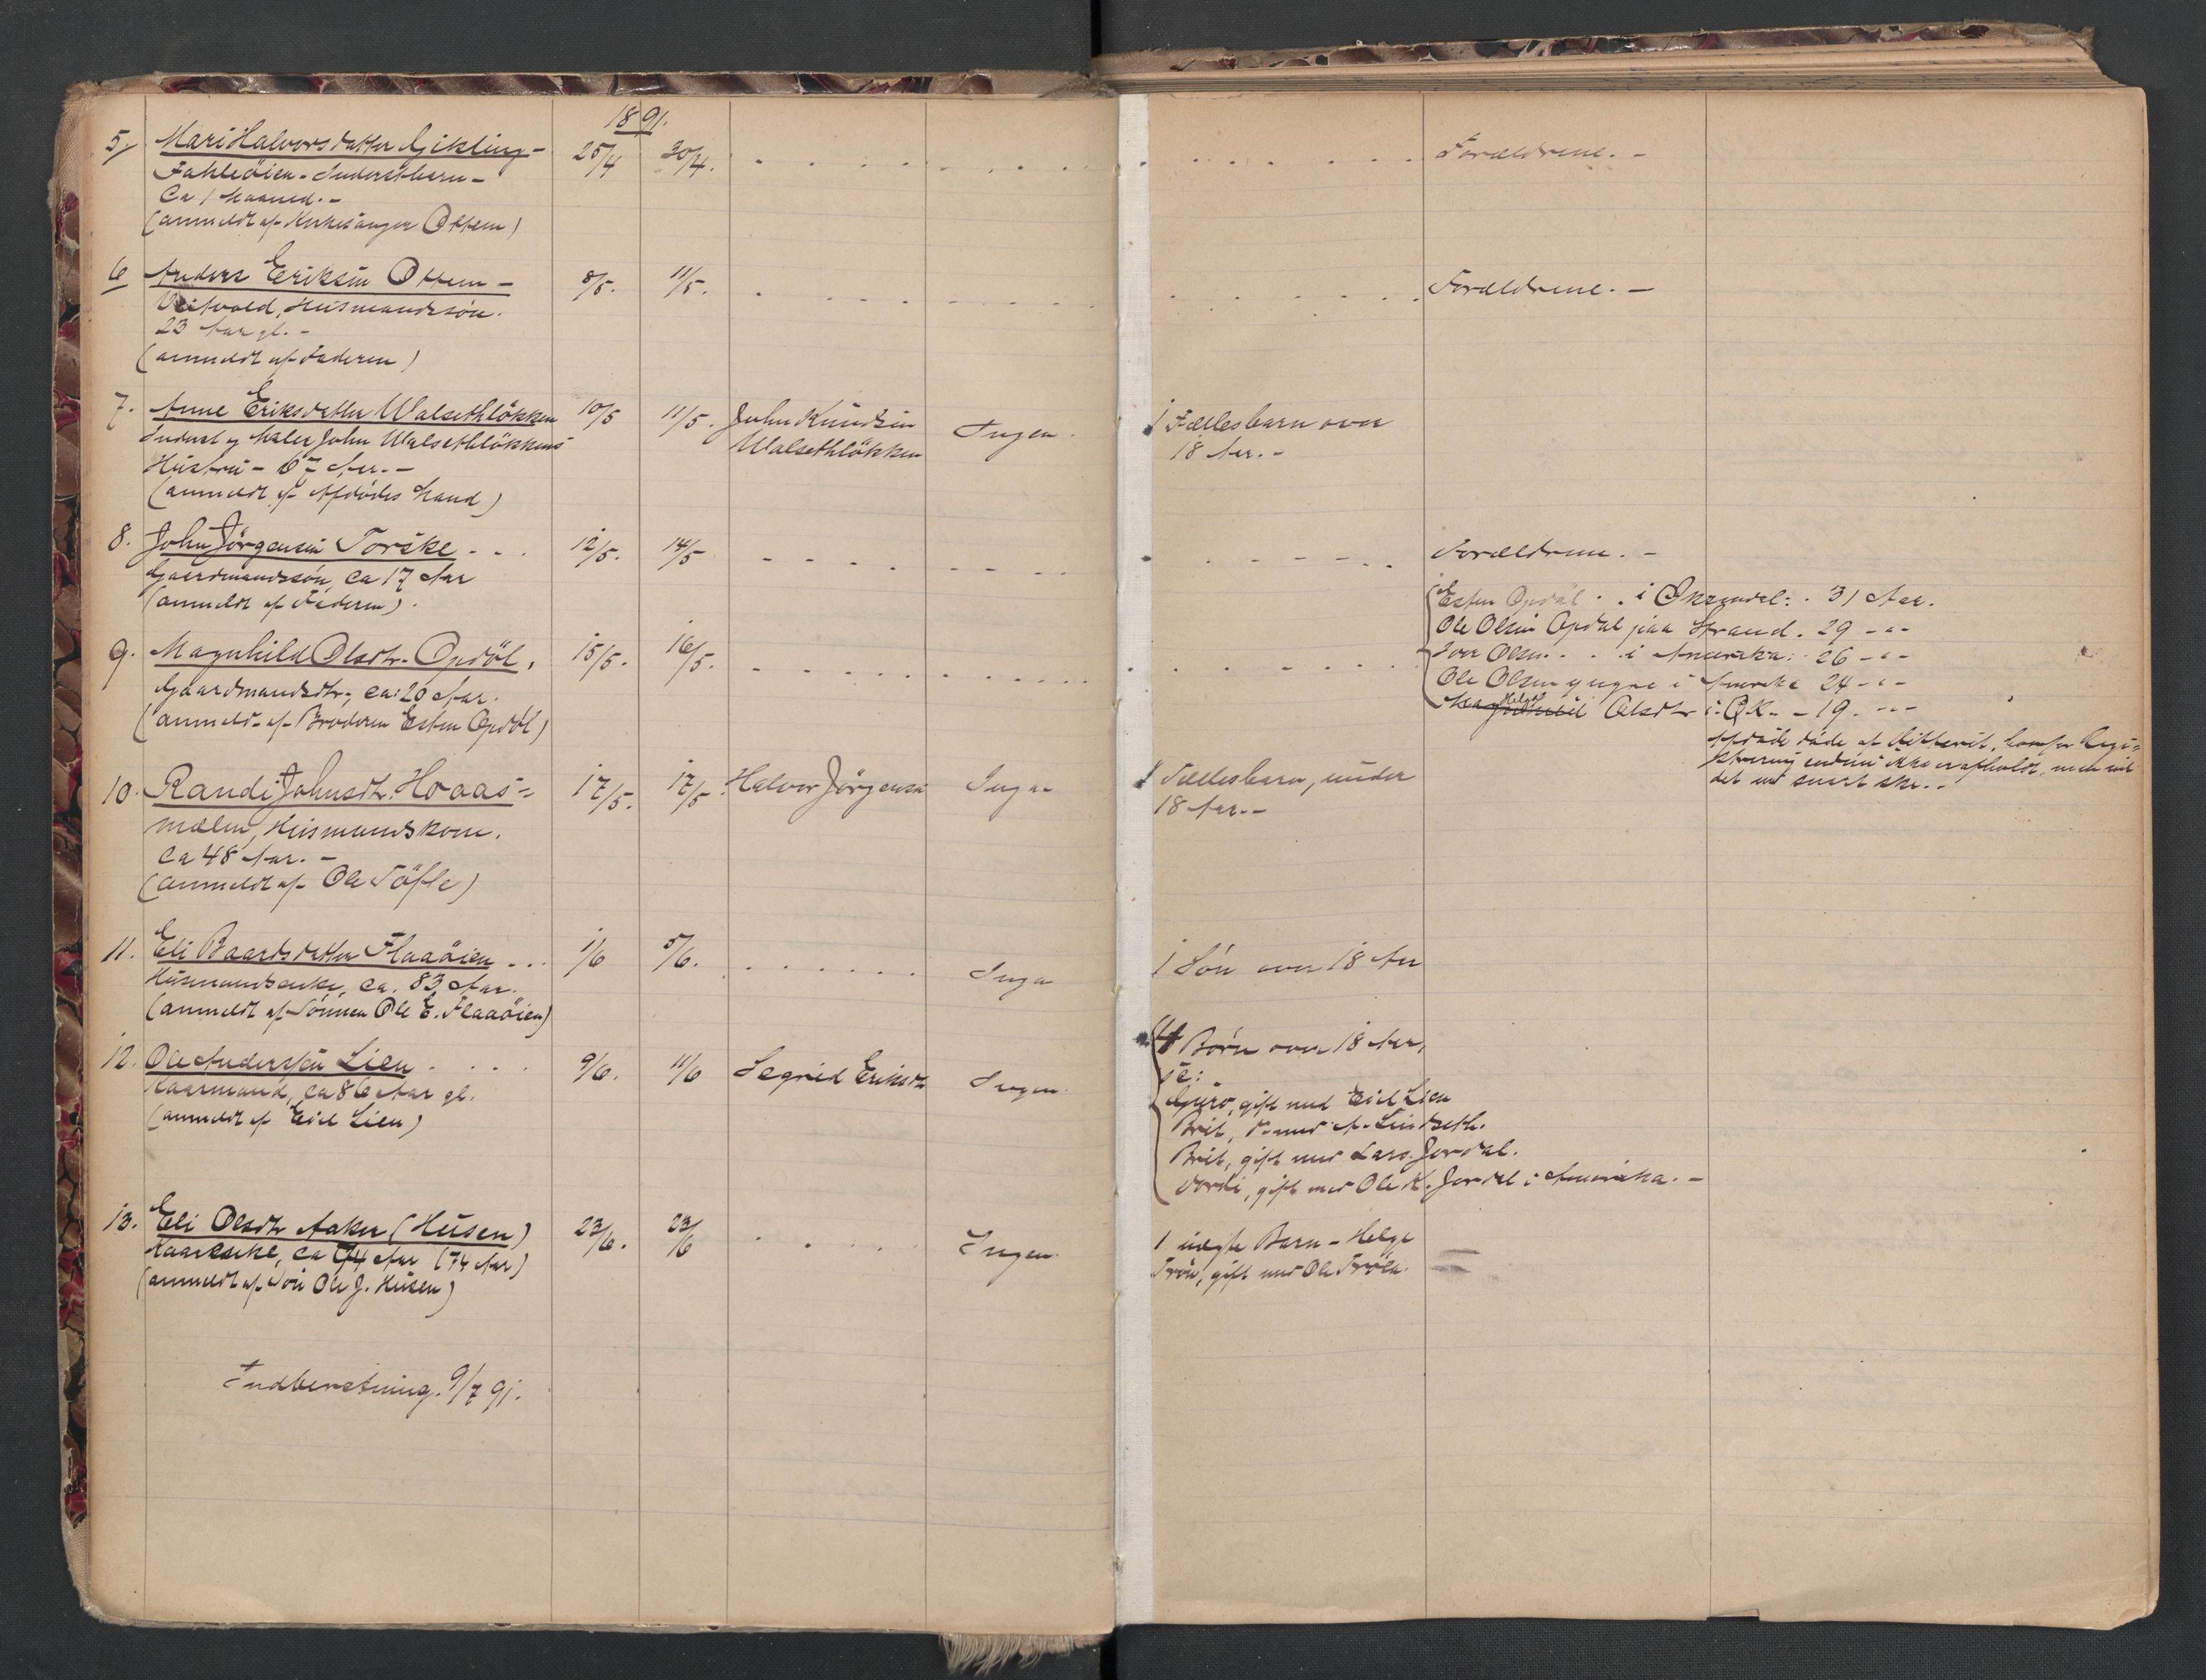 1891.
5. Mari Halvorsdatter Gikling- 25/4 30/4. Forældrene. -
Fahleöien - Inderstbarn -
Ca 1 Maaned. -
(anmeldt af Kirkesanger Ottem)
6 Anders Eriksen Ottem - 8/5. 11/5. Forældrene. -
Husmandssön.
23 Aar gl. -
(anmeldt af Faderen)
7. Anne Eriksdatter Walsethlökken 10/5 11/5. John Knudsen Ingen. 1 Fællesbarn over
Inderst og Maler John Walsethlökkens Walsethlökken 18 Aar. -
Hustru - 67 Aar. -
(anmeldt af Afdödes Mand)
8. John Jörgensen Torske - - . 12/5. 14/5 Forældrene. -
Gaardmandssön, ca 17 Aar
(anmeldt af Faderen).
Esten Opdöl . . i Öksendal: . 31 Aar.
Ole Olsen Opdal paa Strand. 29 - " -
9. Magnhild Olsdtr. Opdöl, 15/5. 16/5. Iver Olsen . . . i Amerika: . 26 - " -
Gaardmandsdtr; ca: 20 Aar. Ole Olsen yngre i Amerika 24 - " -
(anmeldt af Broderen Esten Opdöl) Olsdtr i Ö.K. - 19. - " -
Afdöde döde af
endnu ikke er afholdt, men vil
det snart ske. -
10. Randi Johnsdtr. Hoaas- 17/5. 17/5. Halvor Jörgensen Ingen 1 Fællesbarn, under
mælen, Husmandskone. 18 Aar. -
Ca 48 Aar. -
(anmeldt af Ole Töfte)
11. Eli Baardsdatter Flaaöien . . . 1/6 5/6. Ingen 1 Sön over 18 Aar
Husmandsenke, ca. 83 Aar.
(anmeldt af Sönnen Ole E. Flaaöien)
12. Ole Andersen Lien . . . . 9/6. 11/6 Segrid Eriksdtr Ingen. 4 Börn over 18 Aar,
Kaarmand, ca 86 Aar gl.
(anmeldt af Eril Lien)
Guro, gift med Eril Lien
Brit, Do med A. Lindseth.
Brit, gift med Lars Jordal.
Jordi, gift med Ole K. Jordal i Amerika. -
13. Eli Olsdtr Aaker (Husen) 23/6. 23/6 Ingen. 1 uægte Barn - Helge
Kaarenke, ca 74 Aar (74 Aar) Tröen, gift med Ole Tröen.
(anmeldt af Sön Ole J. Husen)
Indberetning. 9/7 91.